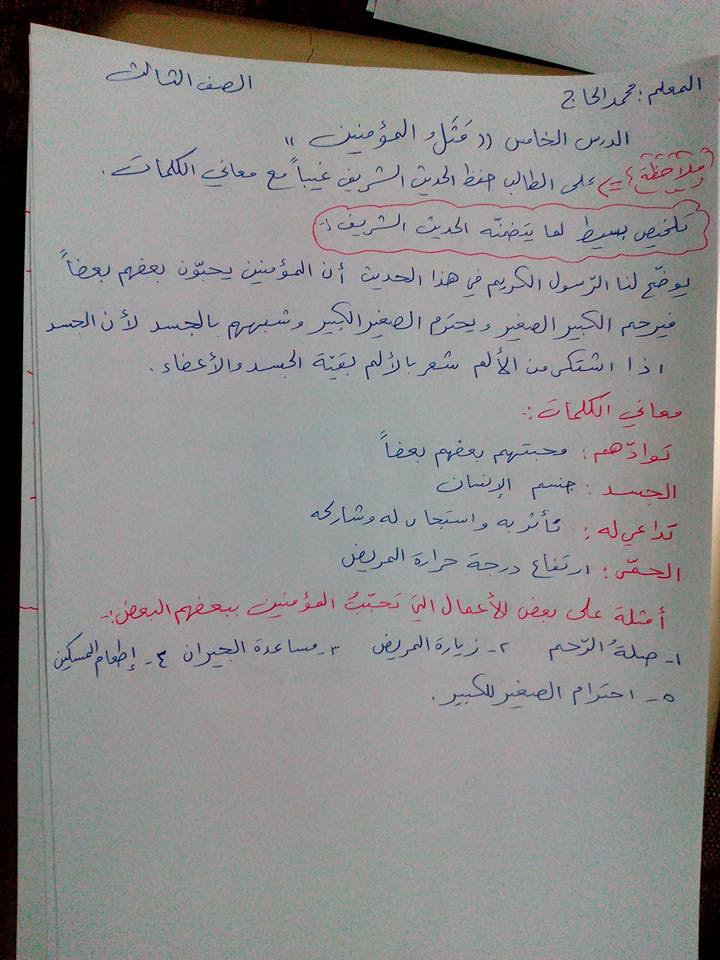 المعلم : محمد الحاج    الصف الثالث
الدرس الخامس (( مَثَل المؤمنين ))
ملاحظة : على الطالب حفظ الحديث الشريف غيباً مع معاني الكلمات .
تلخيص بسيط لما يتضمنّه الحديث الشريف :
يوضّح لنا الرّسول الكريم في هذا الحديث أن المؤمنين يحبّون بعضهم بعضاً
فيرحم الكبير الصغير ويحترم الصغير الكبير وشبههم بالجسد لأن الجسد
اذا اشتكى من الألم شعر بالألم بقيّة الجسد والأعضاء .
معاني الكلمات :
توادّهم : محبتهم بعضهم بعضاً
الجسد : جسم الإنسان
تداعى له : تأثر به واستجاب له وشاركه
الحمّى : ارتفاع درجة حرارة المريض
أمثلة على بعض الأعمال التي تحبّبُ المؤمنين ببعضهم البعض :
١- صلةُ الرّحم ٢- زيارة المريض ٣- مساعدة الجيران ٤- إطعام المسكين
٥- احترام الصغير للكبير .